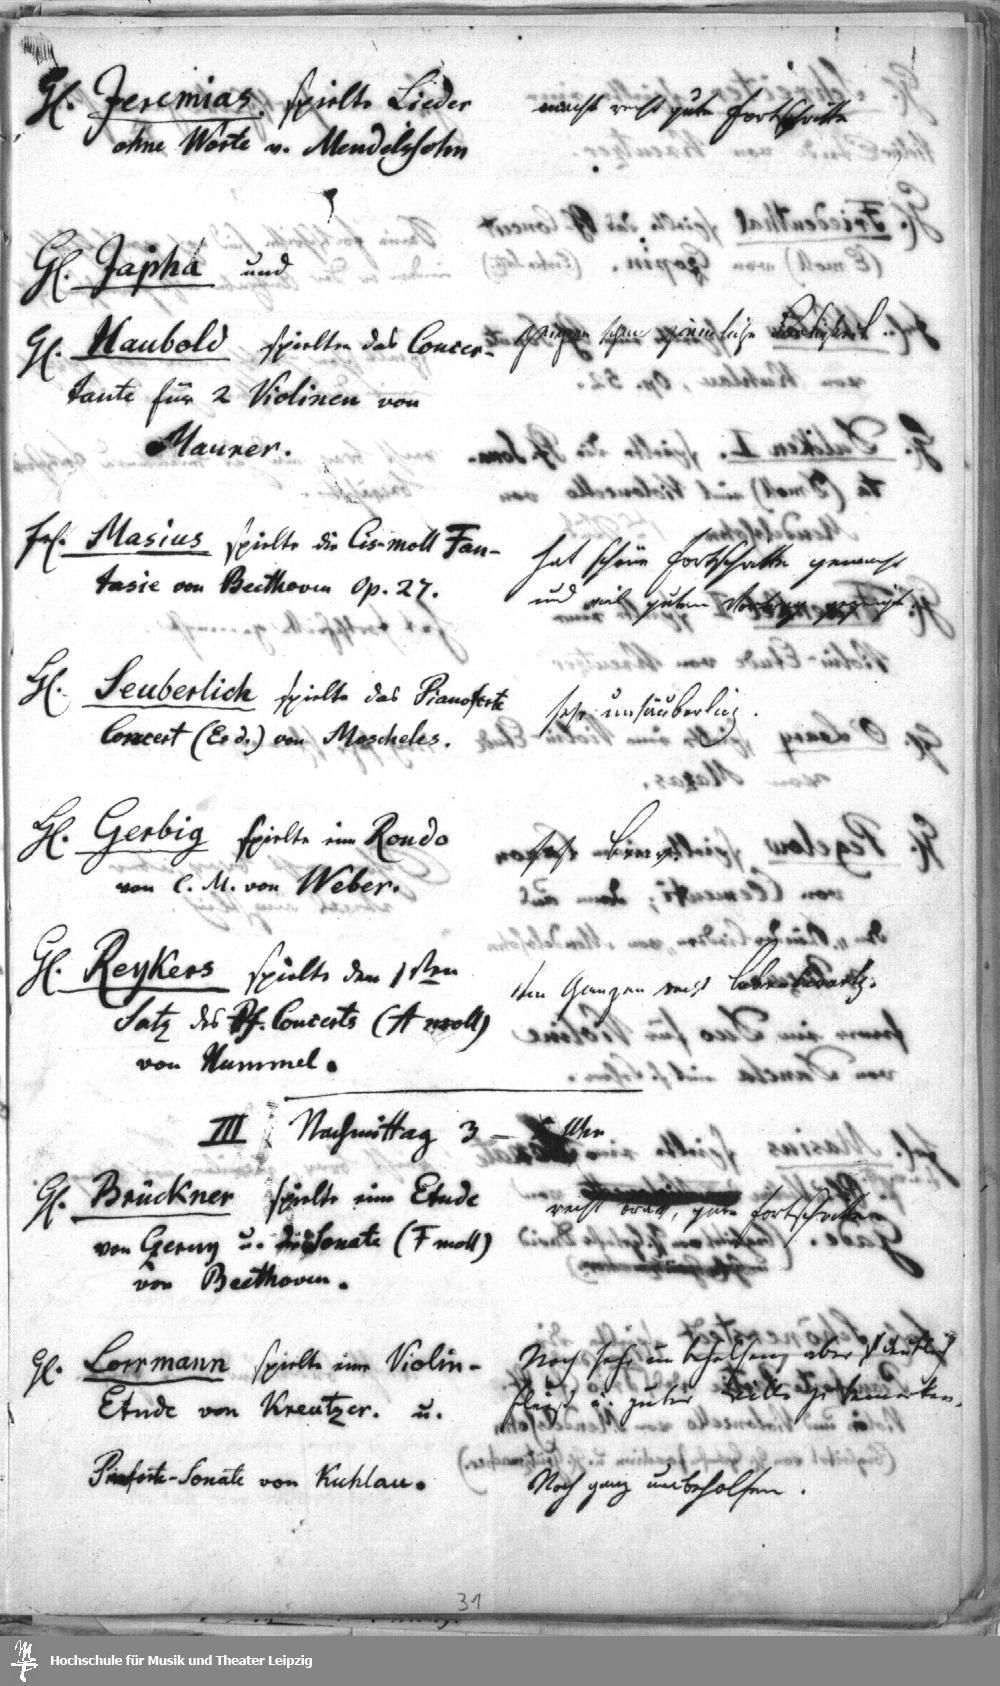 H. Jeremias. spielte Lieder
ohne Worte v. Mendelssohn
macht recht gute Fortschritte
H. Japha und
H. Haubold spielten das Concer-
tante für 2 Violinen von
Maurer.
ziemliche Fertigkeit.
Frl. Masius spielte die Cis-moll Fan-
tasie von Beethoven Op. 27.
hat schöne Fortschritte gemacht
und viel guten Vortrag gezeigt
H. Seuberlich spielte das Pianoforte
Concert (Es d.) von Moscheles.
sehr unsäuberlich.
H. Gerbig spielte ein Rondo
von C. M. von Weber.
sehr brav.
H. Reykers spielte den 1sten
Satz des Pf. Concerts (A moll)
von Hummel.
Im Ganzen recht lobenswerth.
III Nachmittag 3 – Uhr
H. Brückner spielte eine Etude
von Cerny u. die Sonate (F moll)
von Beethoven.
recht brav, gute Fortschritte
H. Lorrmann spielte eine Violin-
Etude von Kreutzer. u.
Noch sehr unbeholfen, aber
Fleiss u. guter Wille zu bemerken.
Pianoforte-Sonate von Kuhlau.
Noch ganz unbeholfen.
31
Hochschule für Musik und Theater Leipzig